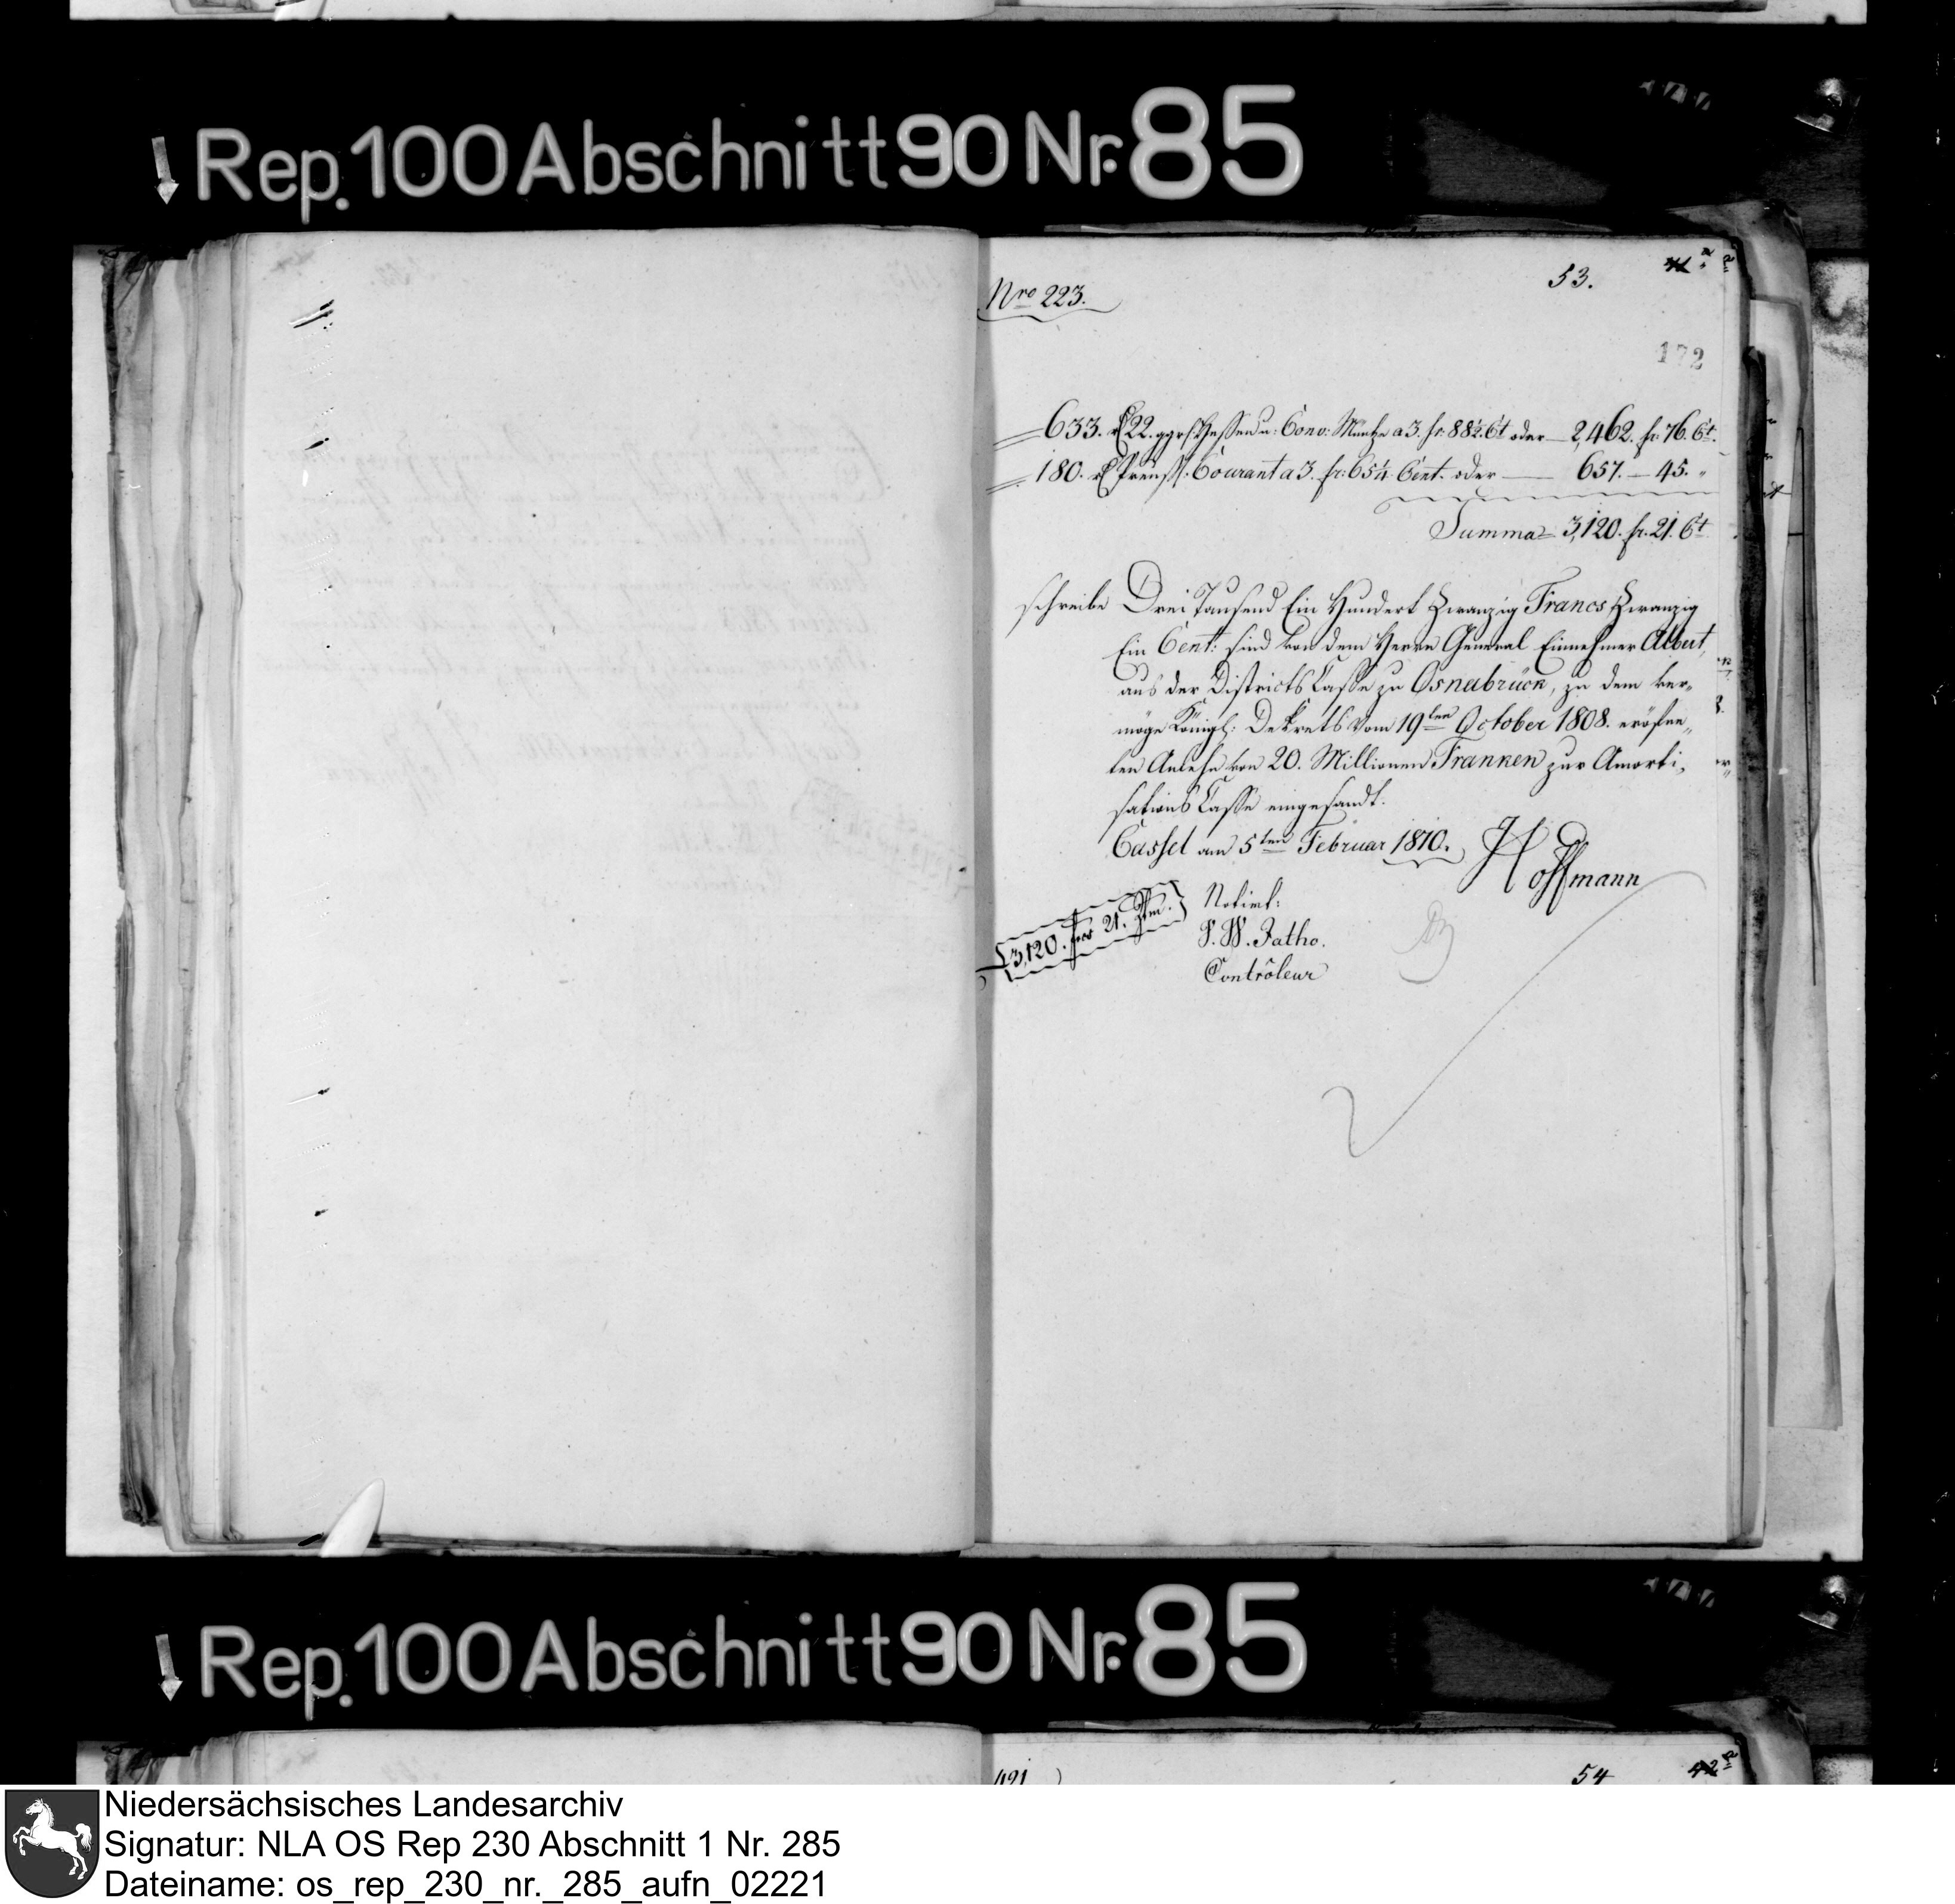 Rep. 100 Abschnitt 90 Nr. 85
Nro 223.
53.
172
633. rl 22. ggrl. Hessen u: Conv: Müntze a 3. fr. 88½ Ct oder — 2,462. fr. 76. Ct.
180. rl Preuß: Courant a 3. fr: 65¼ Cent. oder — 657. — 45. "
Summa = 3,120. fr. 21. Ct
schreibe Drei Tausend Ein Hundert Zwanzig Francs Zwanzig
Ein Cent: sind von dem Herrn General Einnehmer Albert,
aus der Districts Casse zu Osnabrück, zu dem ver-
möge Königl: Dekrets vom 19ten October 1808. eröfne-
ten Anlehn von 20. Millionen Franken zur Amorti-
sations Casse eingesandt.
Cassel am 5ten Februar 1810.
Hoffmann
3,120. frcs 21. Ctm.
Notirt:
F. W. Fatho.
Contrôleur
Rep. 100 Abschnitt 90 Nr. 85
54
42
Niedersächsisches Landesarchiv
Signatur: NLA OS Rep 230 Abschnitt 1 Nr. 285
Dateiname: os_rep_230_nr._285_aufn_02221